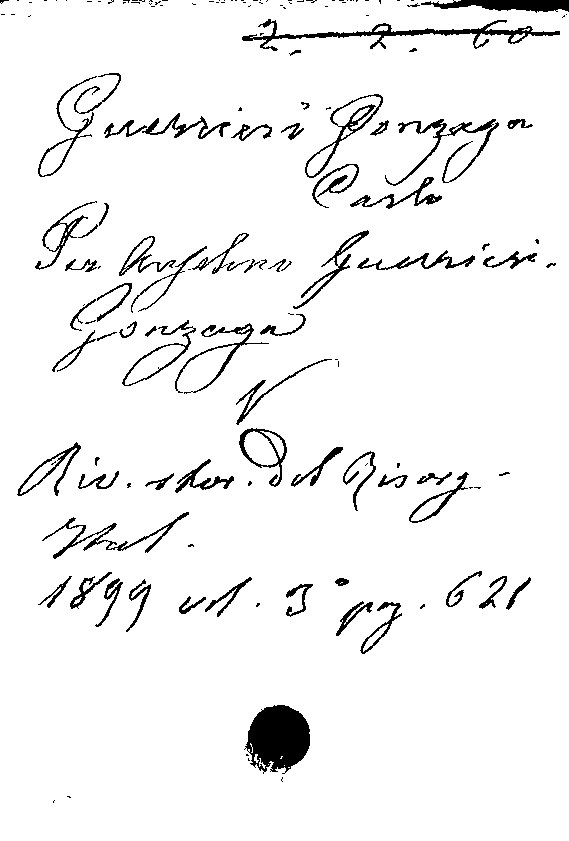 2. 2. 60
Guerrieri Gonzaga
Carlo
Per Anselmo Guerrieri-
Gonzaga
V
Riv. stor. del Risorg-
Ital.
1899 vol. 3° pag. 621